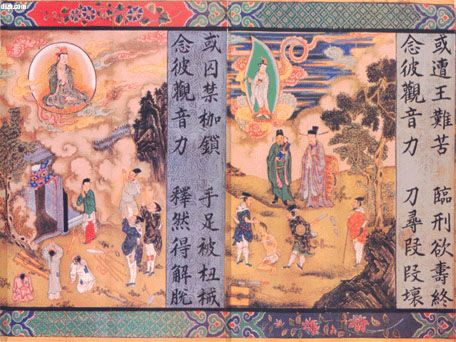 或遭王難苦 臨刑欲壽終
念彼觀音力 刀尋段段壞
或囚禁枷鎖 手足被杻械
念彼觀音力 釋然得解脫